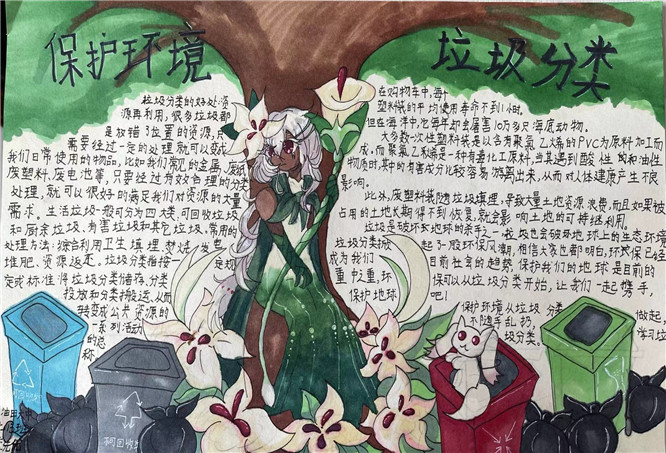 保护环境
垃圾分类
垃圾分类的好处:资
源再利用,很多垃圾都
是放错了位置的资源,只
需要经过一定的处理就可以变成
我们日常使用的物品,比如我们常见的金属、废纸
废塑料、废电池等,只要经过有效合理的分类
处理,就可以很好的满足我们对资源的大量
需求。生活垃圾一般可分为四大类,可回收垃圾
和厨余垃圾、有害垃圾和其它垃圾,常用的
处理方法:综合利用卫生填埋、焚烧、发电、
堆肥、资源返还。垃圾分类指按一定规
定或标准将垃圾分类储存、分类
投放和分类搬运,从而
转变成公共资源的
一系列活动
的总
称
在购物车中,每个
塑料袋的平均使用寿命不到1小时。
但在海洋中,它每年却会屠害10万多只海底动物。
大多数一次性塑料袋是以含有聚氯乙烯的PVC为原料加工而
成,而聚氯乙烯是一种有毒化工原料,当其遇到酸性的和油性
物质时,其中的有害成分比较容易游离出来,从而对人体健康产生不良
影响。
此外,废塑料袋随垃圾填埋,导致大量土地资源浪费,而且如果被
占用的土地长期得不到恢复,就会影响土地的可持续利用。
垃圾是破坏地球的杀手之一,垃圾也会破坏地球上的生态环境
垃圾分类掀起了一股环保风潮,相信大家也都明白,环保已经
成为我们目前社会的趋势,保护我们的地球是目前的
重中之重,环保可以从垃圾分类开始,让我们一起携手,
保护地球吧!
保护环境从垃圾分类做起,
不随手乱扔,学习垃
圾分类。
可回收